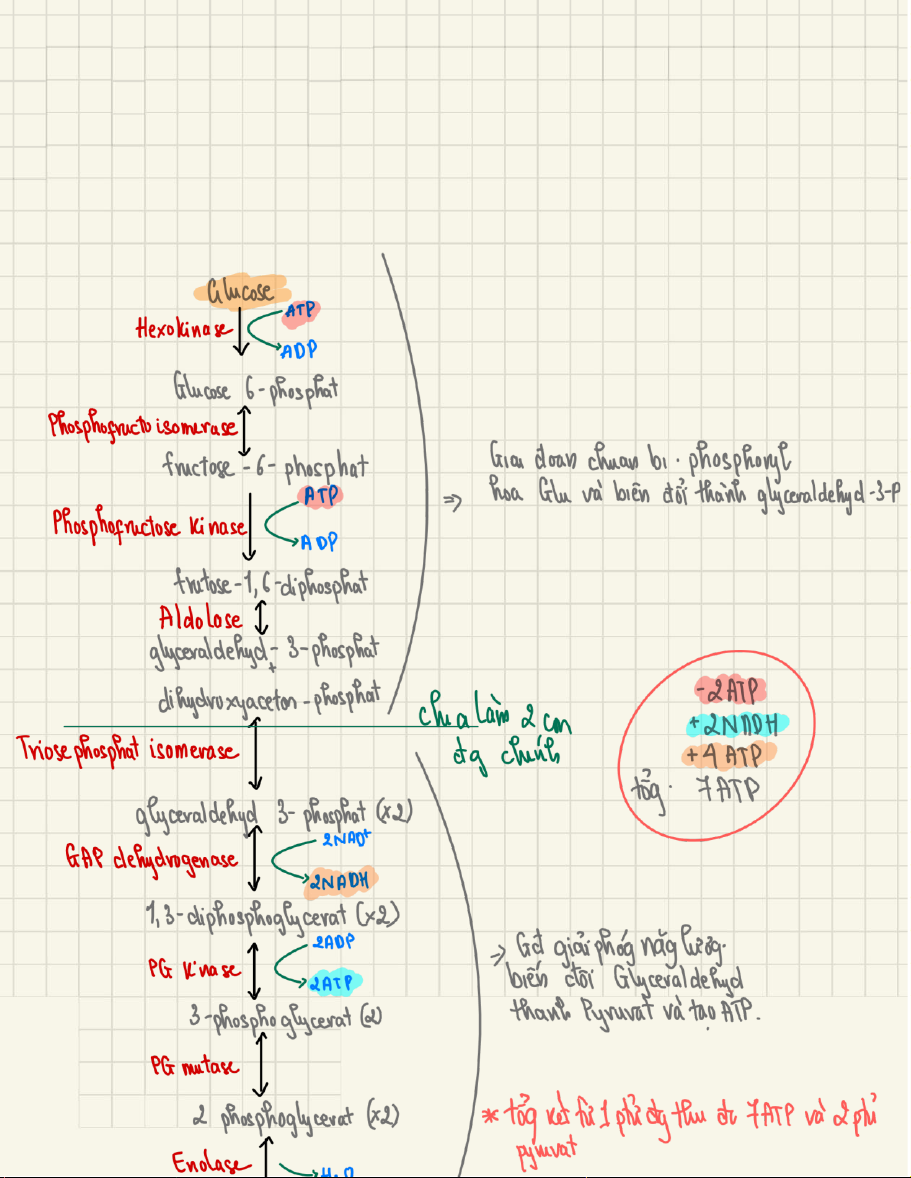 Glucose
ATP
Hexokinase
ADP
Glucose 6-phosphat
Phosphofructo isomerase
fructose-6-phosphat
ATP
Phosphofructose kinase
ADP
frutose-1,6-diphosphat
Aldolose
glyceraldehyd-3-phosphat
+
dihydroxyaceton-phosphat
Triose phosphat isomerase
glyceraldehyd 3-phosphat (x2)
2NAD+
GAP dehydrogenase
2NADH
1,3-diphosphoglycerat (x2)
2ADP
PG kinase
2ATP
3-phosphoglycerat (2)
PG mutase
2 phosphoglycerat (x2)
Enolase
H2O
⇒ Giai đoan chuan bi. phosphoryl
hoa Glu và biên đổi thành glyceraldehyd-3-P
chia làm 2 con
đg chính
-2ATP
+2NADH
+4ATP
tổg. 7ATP
⇒ Gđ giải phóg năg lượg.
biến đổi Glyceraldehyd
thanh Pyruvat và tạo ATP.
* tổg kết từ 1 phtử đg thu đc 7ATP và 2 phtử
pyruvat